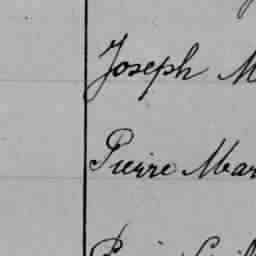 Joseph M
Pierre Mar